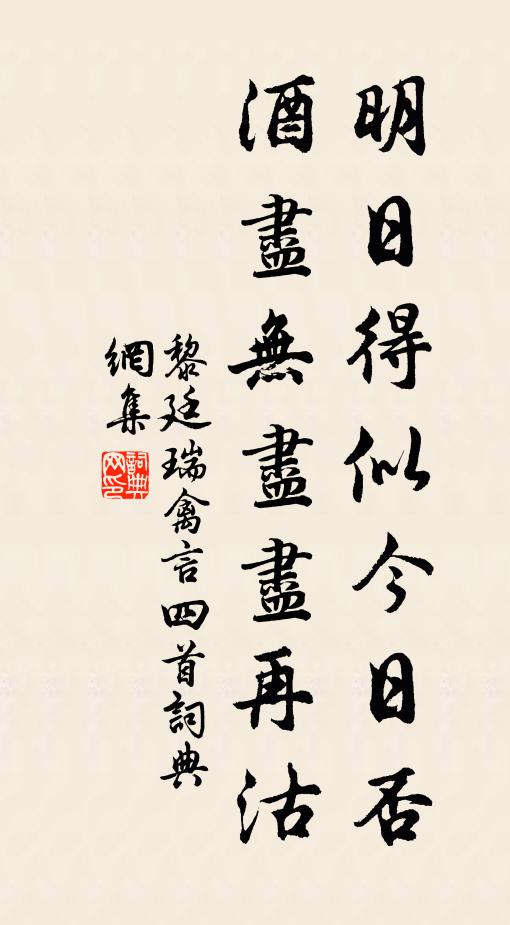 明日得似今日否
酒盡無盡盡再沽
黎廷瑞禽言四首詞典
網集
詞典網印